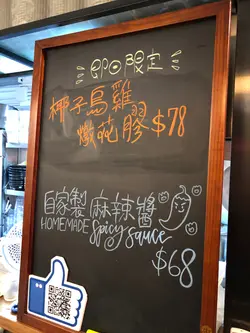 即日限定
椰子烏雞
燉花膠 $78
自家製 麻辣醬
HOMEMADE Spicy sauce
$68